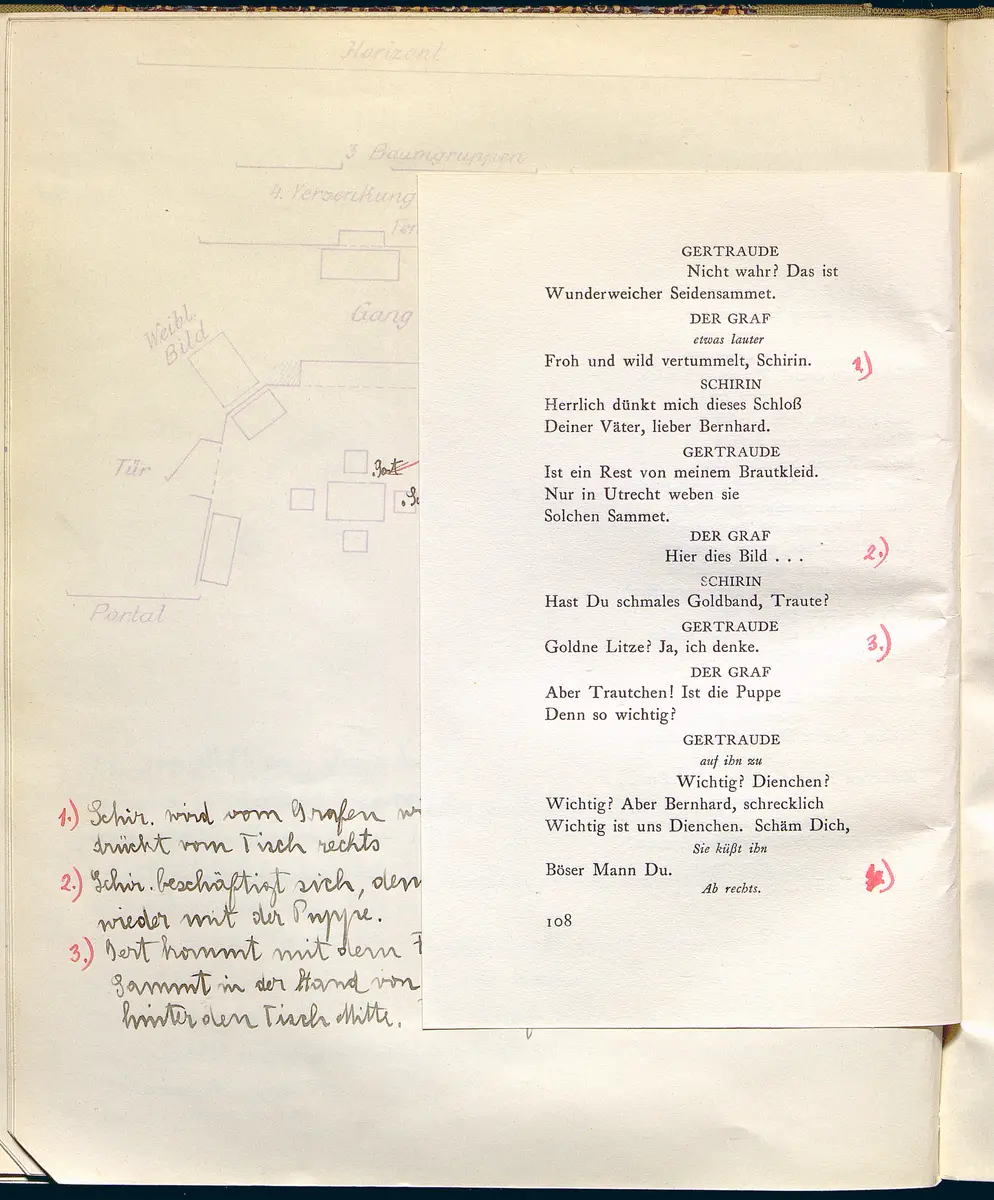 Horizont
3 Baumgruppen
4. Versenkung
Ter
Gang
Weibl.
Bild
Tür
Gert
Portal
1.) Schir. wird vom Grafen
drückt vom Tisch rechts
2.) Schir. beschäftigt sich, den
wieder mit der Puppe.
3.) Gert kommt mit dem
Sammt in der Hand von
hinter den Tisch Mitte.
GERTRAUDE
Nicht wahr? Das ist
Wunderweicher Seidensammet.
DER GRAF
etwas lauter
Froh und wild vertummelt, Schirin. 1.)
SCHIRIN
Herrlich dünkt mich dieses Schloß
Deiner Väter, lieber Bernhard.
GERTRAUDE
Ist ein Rest von meinem Brautkleid.
Nur in Utrecht weben sie
Solchen Sammet.
DER GRAF
Hier dies Bild . . . 2.)
SCHIRIN
Hast Du schmales Goldband, Traute?
GERTRAUDE
Goldne Litze? Ja, ich denke. 3.)
DER GRAF
Aber Trautchen! Ist die Puppe
Denn so wichtig?
GERTRAUDE
auf ihn zu
Wichtig? Dienchen?
Wichtig? Aber Bernhard, schrecklich
Wichtig ist uns Dienchen. Schäm Dich,
Sie küßt ihn
Böser Mann Du.
Ab rechts.
108